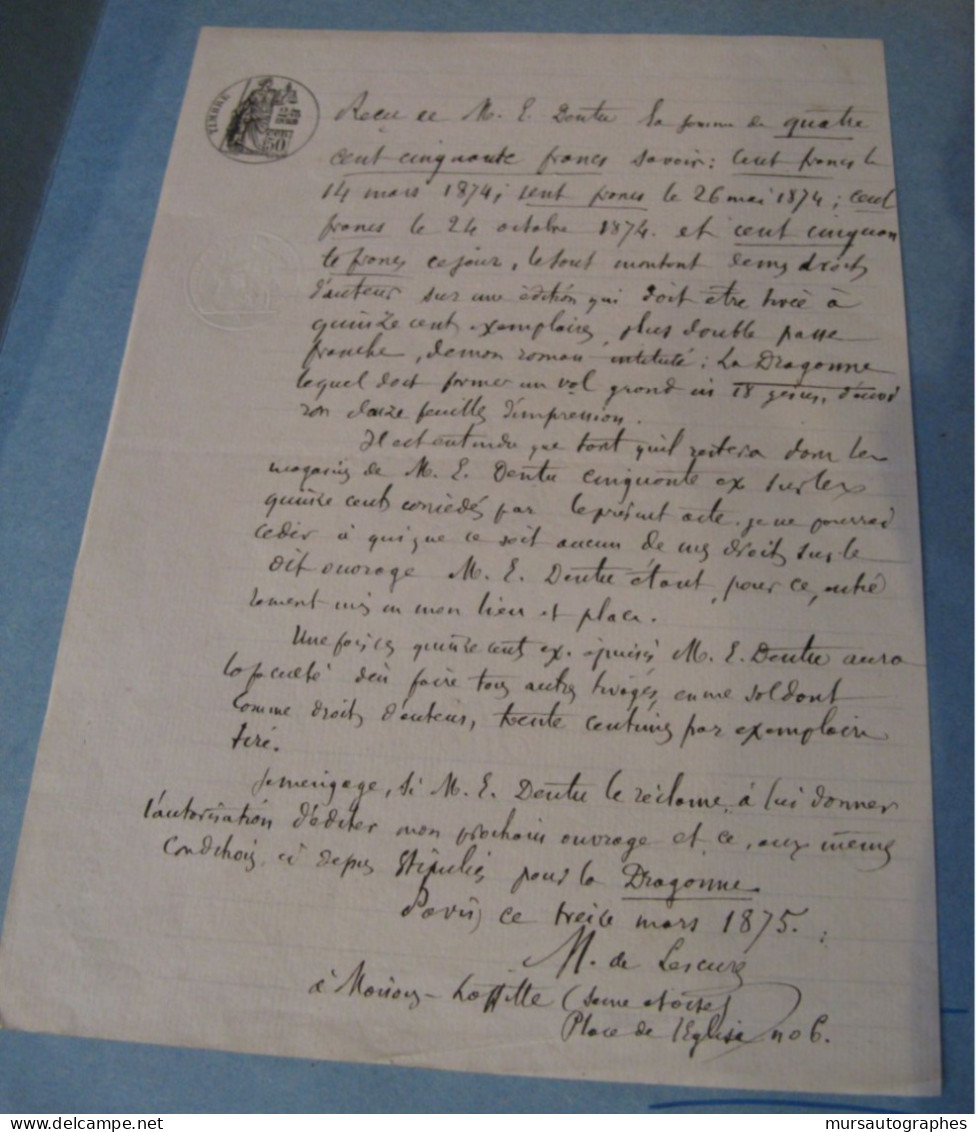 TIMBRE
50
Reçu de M. E. Dentu la somme de quatre
cent cinquante francs savoir : Cent francs le
14 mars 1874 ; sent francs le 26 mai 1874 ; cent
francs le 24 octobre 1874. et cent cinquan
te francs ce jour, le tout montant de mes droits
d'auteur sur une édition qui doit être tirée à
quinze cent exemplaires, plus double passe
franche, de mon roman intitulé : La Dragonne
lequel doit former un vol grand in 18 jésus, d'envi
ron douze feuilles d'impression.
Il est entendu que tant qu'il restera dans les
magasins de M. E. Dentu cinquante ex sur les
quinze cents concédés par le présent acte. je ne pourrai
céder à qui que ce soit aucun de mes droits sur le
dit ouvrage M. E. Dentu étant, pour ce, entiè
rement mis en mon lieu et place.
Une fois les quinze cent ex. épuisés M. E. Dentu aura
la faculté d'en faire tous autres tirages, en me soldant
comme droits d'auteur, trente centimes par exemplaire
tiré.
Je m'engage, si M. E. Dentu le réclame, à lui donner
l'autorisation d'éditer mon prochain ouvrage et ce, aux mêmes
conditions ci depus stipulées pour la Dragonne.
Paris, ce treize mars 1875.
M. de Lescure
à Maisons-Laffitte (Seine et Oise)
Place de l'Eglise no 6.
delcampe.net
mursautographes